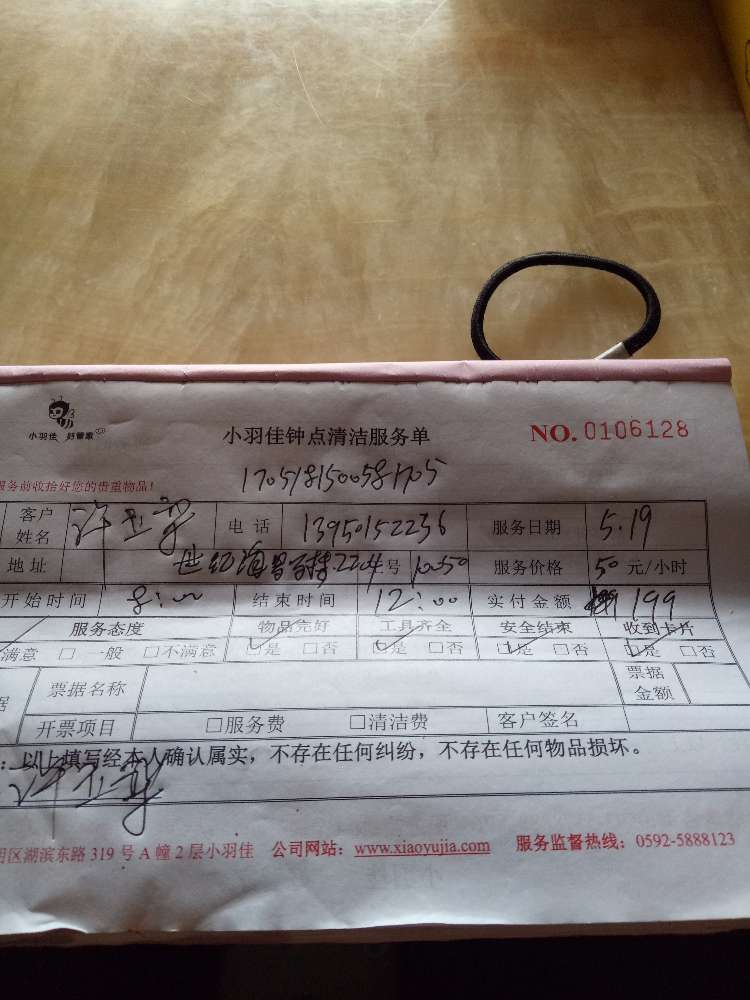 小羽佳 好管家
小羽佳钟点清洁服务单 NO. 0106128
服务前收拾好您的贵重物品!
1705181500581705
客户姓名 许玉 电话 13950152236 服务日期 5.19
地址 世纪海 2204号 1050 服务价格 50 元/小时
开始时间 8:00 结束时间 12:00 实付金额 199
服务态度 物品完好 工具齐全 安全结束 收到卡片
满意 □一般 □不满意 □是 □否 □是 □否 □是 □否 □是 □否
据 票据名称 票据金额
开票项目 □服务费 □清洁费 客户签名
:以上填写经本人确认属实,不存在任何纠纷,不存在任何物品损坏。
许玉
明区湖滨东路 319 号 A 幢 2 层小羽佳 公司网站:www.xiaoyujia.com 服务监督热线:0592-5888123